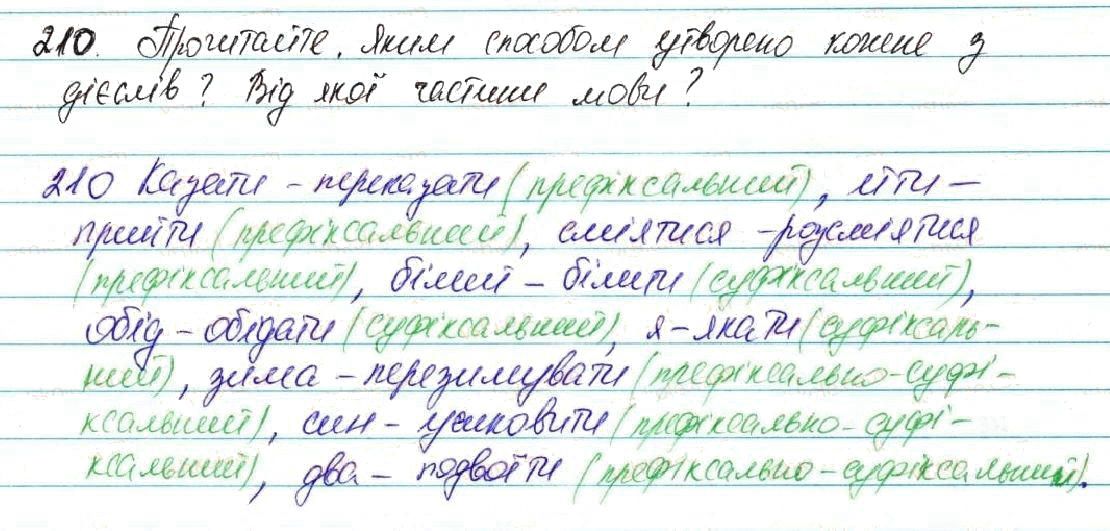 210. Прочитайте. Яким способом утворено кожне з
дієслів? Від якої частини мови?
210 Казати - переказати (префіксальний), йти -
прийти (префіксальний), сміятися - розсміятися
(префіксальний), білий - білити (суфіксальний),
обід - обідати (суфіксальний), я - якати (суфіксаль-
ний), зима - перезимувати (префіксально-суфі-
ксальний), син - усиновити (префіксально-суфі-
ксальний), два - подвоїти (префіксально-суфіксальний).